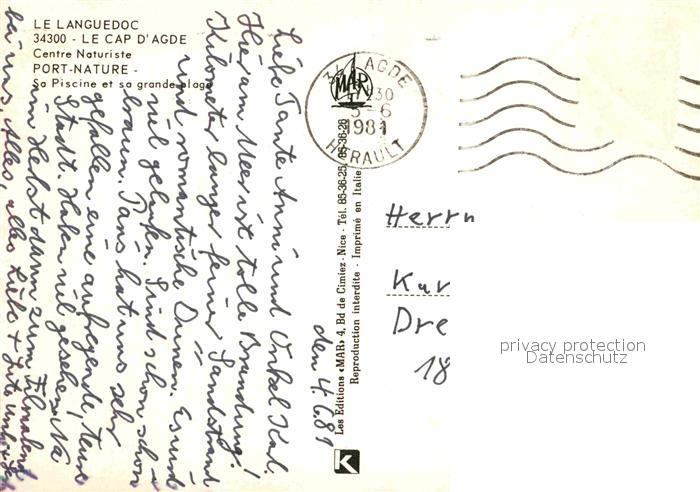 LE LANGUEDOC
34300 - LE CAP D'AGDE
Centre Naturiste
PORT-NATURE -
Sa Piscine et sa grande plage
den 4.6.81
Liebe Tante Anni und Onkel Karl.
Hier am Meer ist tolle Brandung!
Kilometer langer feiner Sandstrand
und romantische Dünen. Es wird
viel gelaufen. Sind schon schön
braun. Paris hat uns sehr
gefallen eine aufregende, teure
Stadt. Haben viel gesehen. Na
im Herbst dann zum Filmabend
bei uns. Alles, alles Liebe + Gute
34 AGDE
30
5-6
1981
HERAULT
MAR
Les Editions «MAR» 4, Bd de Cimiez - Nice - Tél. 85-36-25, 85-36-26
Reproduction interdite - Imprimé en Italie
K
Herrn
Kar
Dre
18
privacy protection
Datenschutz